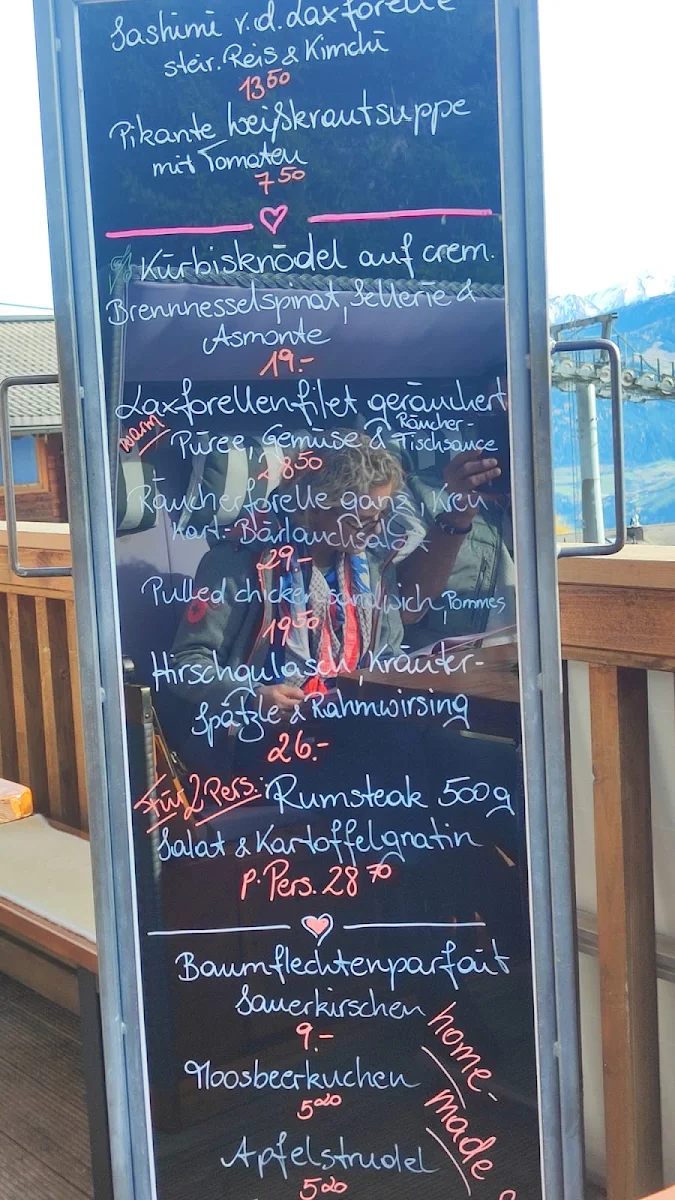 Sashimi v.d. Laxforelle
steir. Reis & Kimchi
13 50
Pikante Weißkrautsuppe
mit Tomaten
7 50
Kürbisknödel auf crem.
Brennnesselspinat, Sellerie &
Asmonte
19.-
Laxforellenfilet geräuchert
warm Püree, Gemüse & Räucher-
Fischsauce
28 50
Räucherforelle ganz, Kren
Kart.-Bärlauchsalat
29.-
Pulled chicken sandwich, Pommes
19 50
Hirschgulasch, Kräuter-
Spätzle & Rahmwirsing
26.-
Für 2 Pers.: Rumsteak 500g
Salat & Kartoffelgratin
P. Pers. 28 70
Baumflechtenparfait
Sauerkirschen
9.-
home-
Moosbeerkuchen
5 20
made
Apfelstrudel
5 20